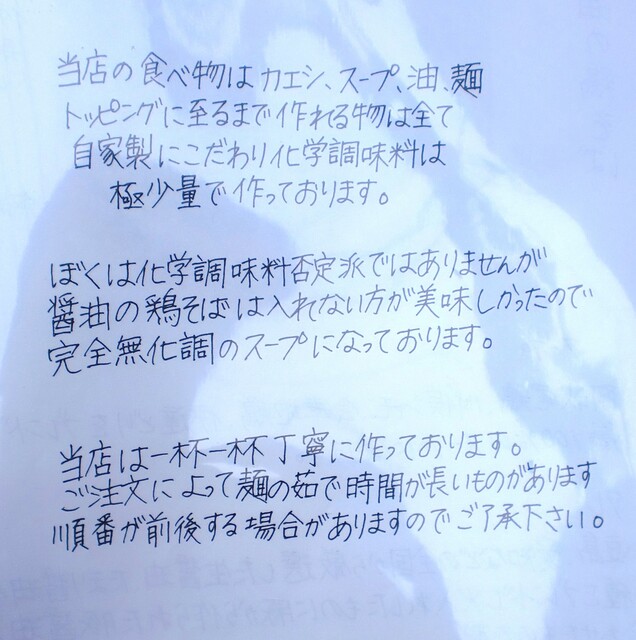 当店の食べ物はカエシ、スープ、油、麺
トッピングに至るまで作れる物は全て
自家製にこだわり化学調味料は
極少量で作っております。
ぼくは化学調味料否定派ではありませんが
醤油の鶏そばは入れない方が美味しかったので
完全無化調のスープになっております。
当店は一杯一杯丁寧に作っております。
ご注文によって麺の茹で時間が長いものがあります
順番が前後する場合がありますのでご了承下さい。